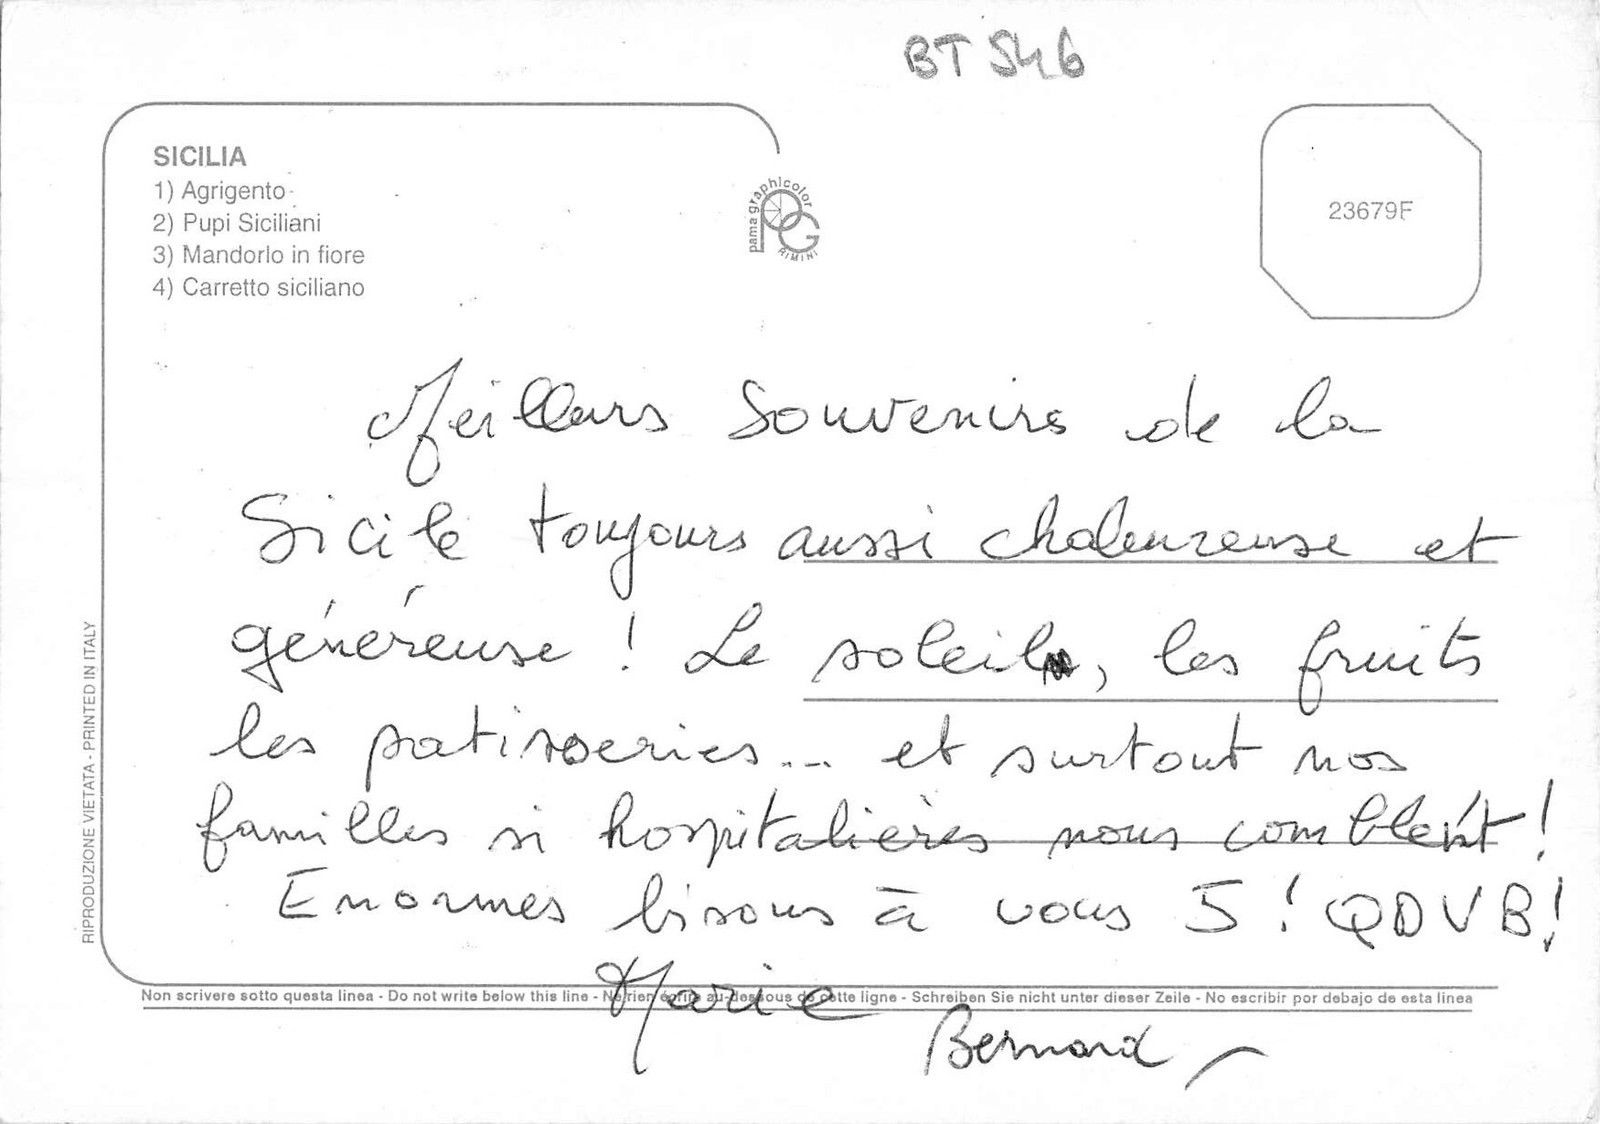 BT 546
SICILIA
1) Agrigento
2) Pupi Siciliani
3) Mandorlo in fiore
4) Carretto siciliano
pama graphicolor
PG
RIMINI
23679F
Meilleurs Souvenirs de la
Sicile toujours aussi chaleureuse et
généreuse ! Le soleil, les fruits
les patisseries... et surtout nos
familles si hospitalières nous comblent !
Enormes bisous à vous 5 ! QDVB !
Marie
Bernard
RIPRODUZIONE VIETATA - PRINTED IN ITALY
Non scrivere sotto questa linea - Do not write below this line - Ne rien écrire au-dessous de cette ligne - Schreiben Sie nicht unter dieser Zeile - No escribir por debajo de esta linea